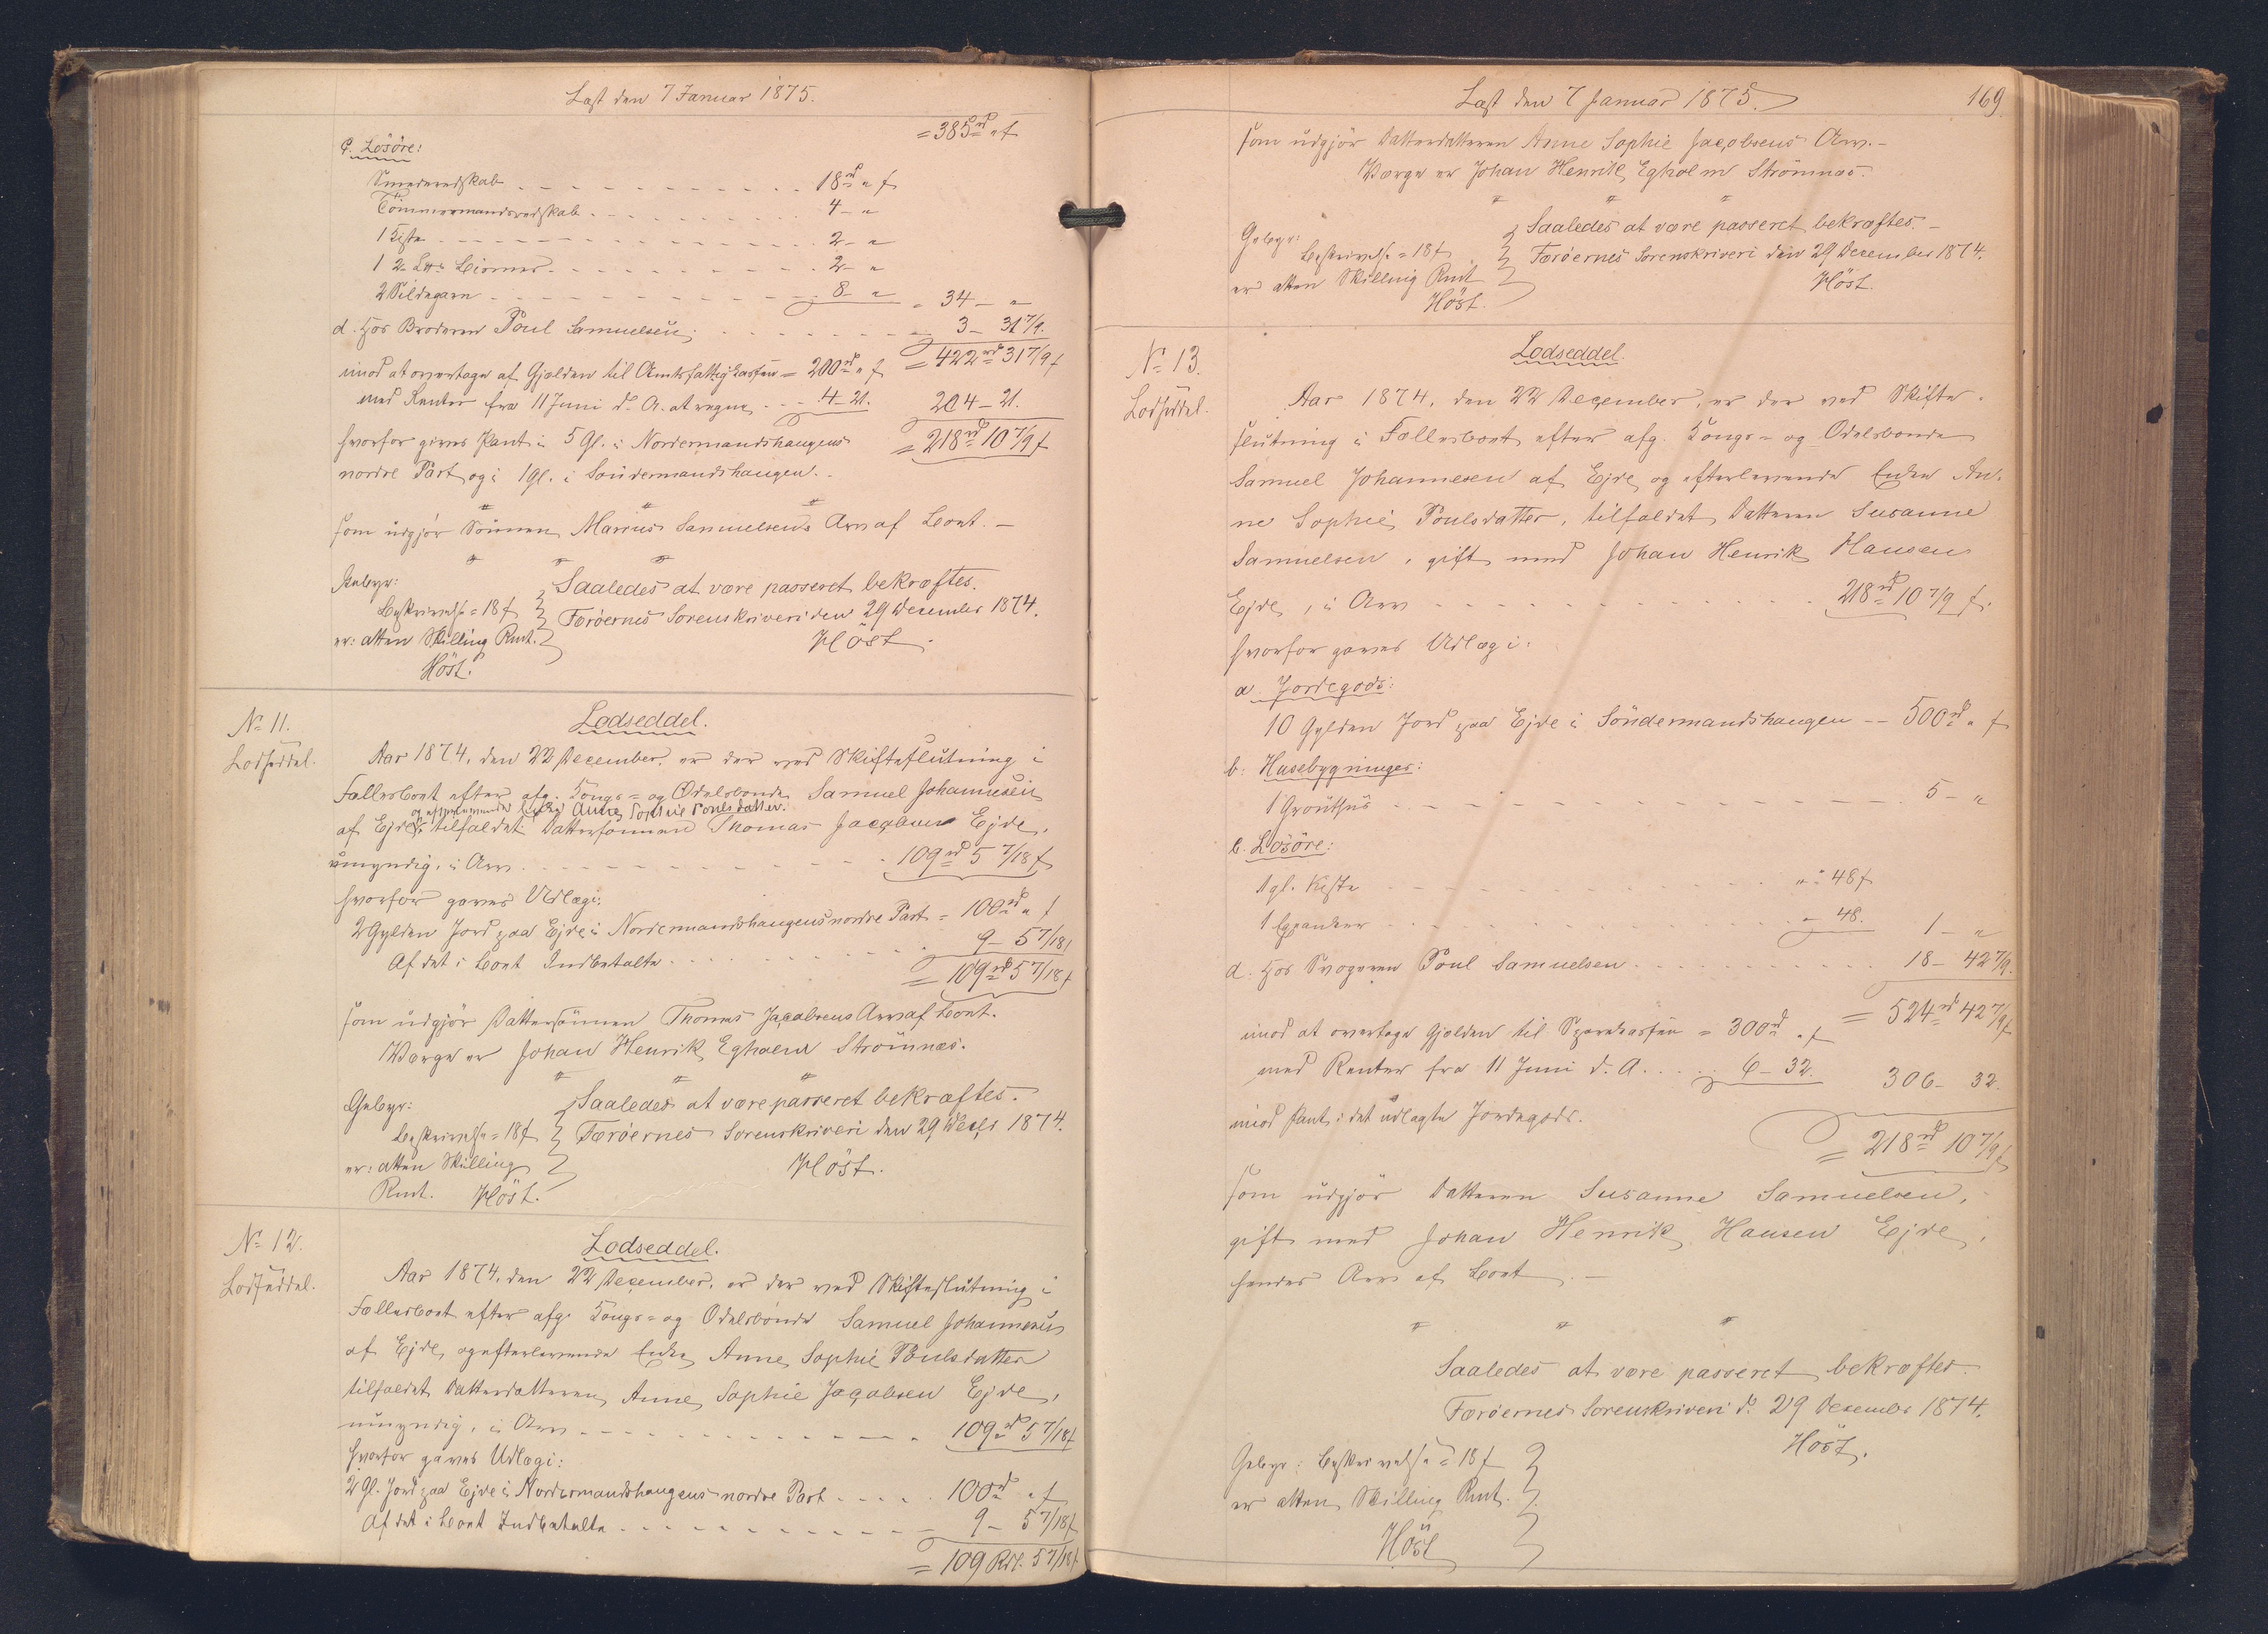 Læst den 7 Januar 1875.
= 385 rd " ß
c. Lösöre:
Smederedskab - - - 18 rd " ß
Tömmermandsredskab - - - 4 - "
1 Kiste - - - 2 - "
1 2 Lpd Bismer - - - 2 - "
2 Sildegarn - - - 8 - " = 34 - "
d. Hos Broderen Poul Samuelsen - - - 3 - 31 7/9.
= 422 rd 31 7/9 ß
imod at overtage af Gjælden til Amtsfattigkassen = 200 rd " ß
med Renter fra 11 Juni d. A. at regne - - 4 - 21. 204 - 21.
hvorfor gives Pant i 5 Gl. i Nordermandshaugens = 218 rd 10 7/9 ß
nordre Part og i 1 gl. i Söndermandshaugen.
som udgjör Sönnen Marius Samuelsens Arv af Boet. -
Gebyr:
Beskrivelse = 18 ß
er: atten Skilling Rmt.
Höst.
Saaledes at være passeret bekræftes.
Færöernes Sorenskriveri den 29 December 1874.
Höst.
No 11.
Lodseddel.
Lodseddel.
Aar 1874, den 22 December, er der ved Skifteslutning i
Fællesboet efter afg. Kongs- og Odelsbonde Samuel Johannesen
og efterlevende Enke Anne Sophie Poulsdatter.
af Ejde tilfaldet Dattersönnen Thomas Jacobsen Ejde,
umyndig, i Arv - - - 109 rd 5 7/18 ß
hvorfor gaves Udlæg i:
2 Gylden Jord paa Ejde i Nordermandshaugens nordre Part = 100 rd " ß
Af det i Boet Indbetalte - - - 9 - 5 7/18 ß
= 109 rd 5 7/18 ß
som udgjör Dattersönnen Thomas Jacobsens Arv af Boet.
Værge er Johan Henrik Egholm Strömnæs.
Gebyr:
Beskrivelse = 18 ß
er: atten Skilling
Rmt. Höst.
Saaledes at være passeret bekræftes.
Færöernes Sorenskriveri den 29 Decbr 1874.
Höst.
No 12.
Lodseddel.
Lodseddel.
Aar 1874, den 22 December, er der ved Skifteslutning i
Fællesboet efter afg. Kongs- og Odelsbonde Samuel Johannesen
af Ejde, og efterlevende Enke Anne Sophie Poulsdatter
tilfaldet Datterdatteren Anne Sophie Jacobsen Ejde,
umyndig, i Arv - - - 109 rd 5 7/18 ß
hvorfor gaves Udlæg i:
2 Gl. Jord paa Ejde i Nordermandshaugens nordre Part - - - 100 rd " ß
Af det i Boet Indbetalte - - - 9 - 5 7/18 ß
= 109 Rdl. 5 7/18 ß
Læst den 7 Januar 1875.
169.
som udgjör Datterdatteren Anne Sophie Jacobsens Arv. -
Værge er Johan Henrik Egholm Strömnæs.
Gebyr:
Beskrivelse = 18 ß
er atten Skilling Rmt
Höst.
Saaledes at være passeret bekræftes. -
Færöernes Sorenskriveri den 29 December 1874.
Höst.
No 13.
Lodseddel.
Lodseddel.
Aar 1874, den 22 December, er der ved Skifte-
slutning i Fællesboet efter afg. Kongs- og Odelsbonde
Samuel Johannesen af Ejde, og efterlevende Enke An-
ne Sophie Poulsdatter, tilfaldet Datteren Susanne
Samuelsen, gift med Johan Henrik Hansen
Ejde, i Arv - - - 218 rd 10 7/9 ß.
hvorfor gaves Udlæg i:
a. Jordegods:
10 Gylden Jord paa Ejde i Söndermandshaugen -- 500 rd " ß
b. Husebygninger:
1 Grouthus - - - 5 - "
c. Lösöre:
1 gl. Kiste - - - " - 48 ß
1 Spanker - - - " - 48. 1 - "
d. Hos Svogeren Poul Samuelsen - - - 18 - 42 7/9.
= 524 rd 42 7/9 ß
imod at overtage Gjælden til Sparekassen = 300 rd " ß
med Renter fra 11 Juni d. A. - - - 6 - 32. 306 - 32.
imod Pant i det udlagte Jordegods.
= 218 rd 10 7/9 ß
som udgjör Datteren Susanne Samuelsen,
gift med Johan Henrik Hansen Ejde,
hendes Arv af Boet. -
Saaledes at være passeret bekræftes.
Færöernes Sorenskriveri d. 29 December 1874.
Höst.
Gebyr: Beskrivelse = 18 ß
er atten Skilling Rmt.
Höst